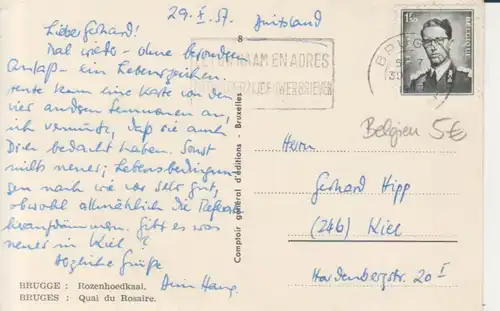 29. X. 57.
Lieber Gerhard!
Mal wieder - ohne besonderen
Anlaß - ein Lebenszeichen.
Heute kam eine Karte von den
vier andern Semmonen an,
ich vermute, daß sie auch
Dich bedacht haben. Sonst
nichts neues; Lebensbedingun-
gen nach wie vor sehr gut,
obwohl allmählich die Referate
heraufdämmern. Gibt es was
neues in Kiel?
Herzliche Grüße
Dein Hans.
BRUGGE : Rozenhoedkaai.
BRUGES : Quai du Rosaire.
8
Comptoir général d'éditions - Bruxelles
NAAM EN ADRES
1F50
BELGIQUE
Belgien 5€
Herrn
Gerhard Hipp
(24b) Kiel
Hardenbergstr. 20 I